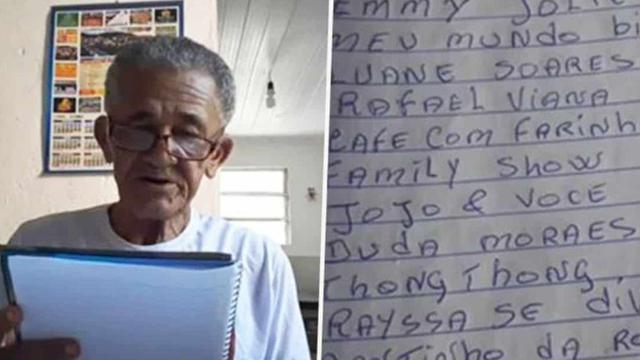 EMMY JOLI
MEU MUNDO
LUANE SOARES
RAFAEL VIANA
CAFE COM FARINH
FAMILY SHOW
JOJO & VOCE
DUDA MORAES
THONG THONG
RAYSSA SE dil
DA